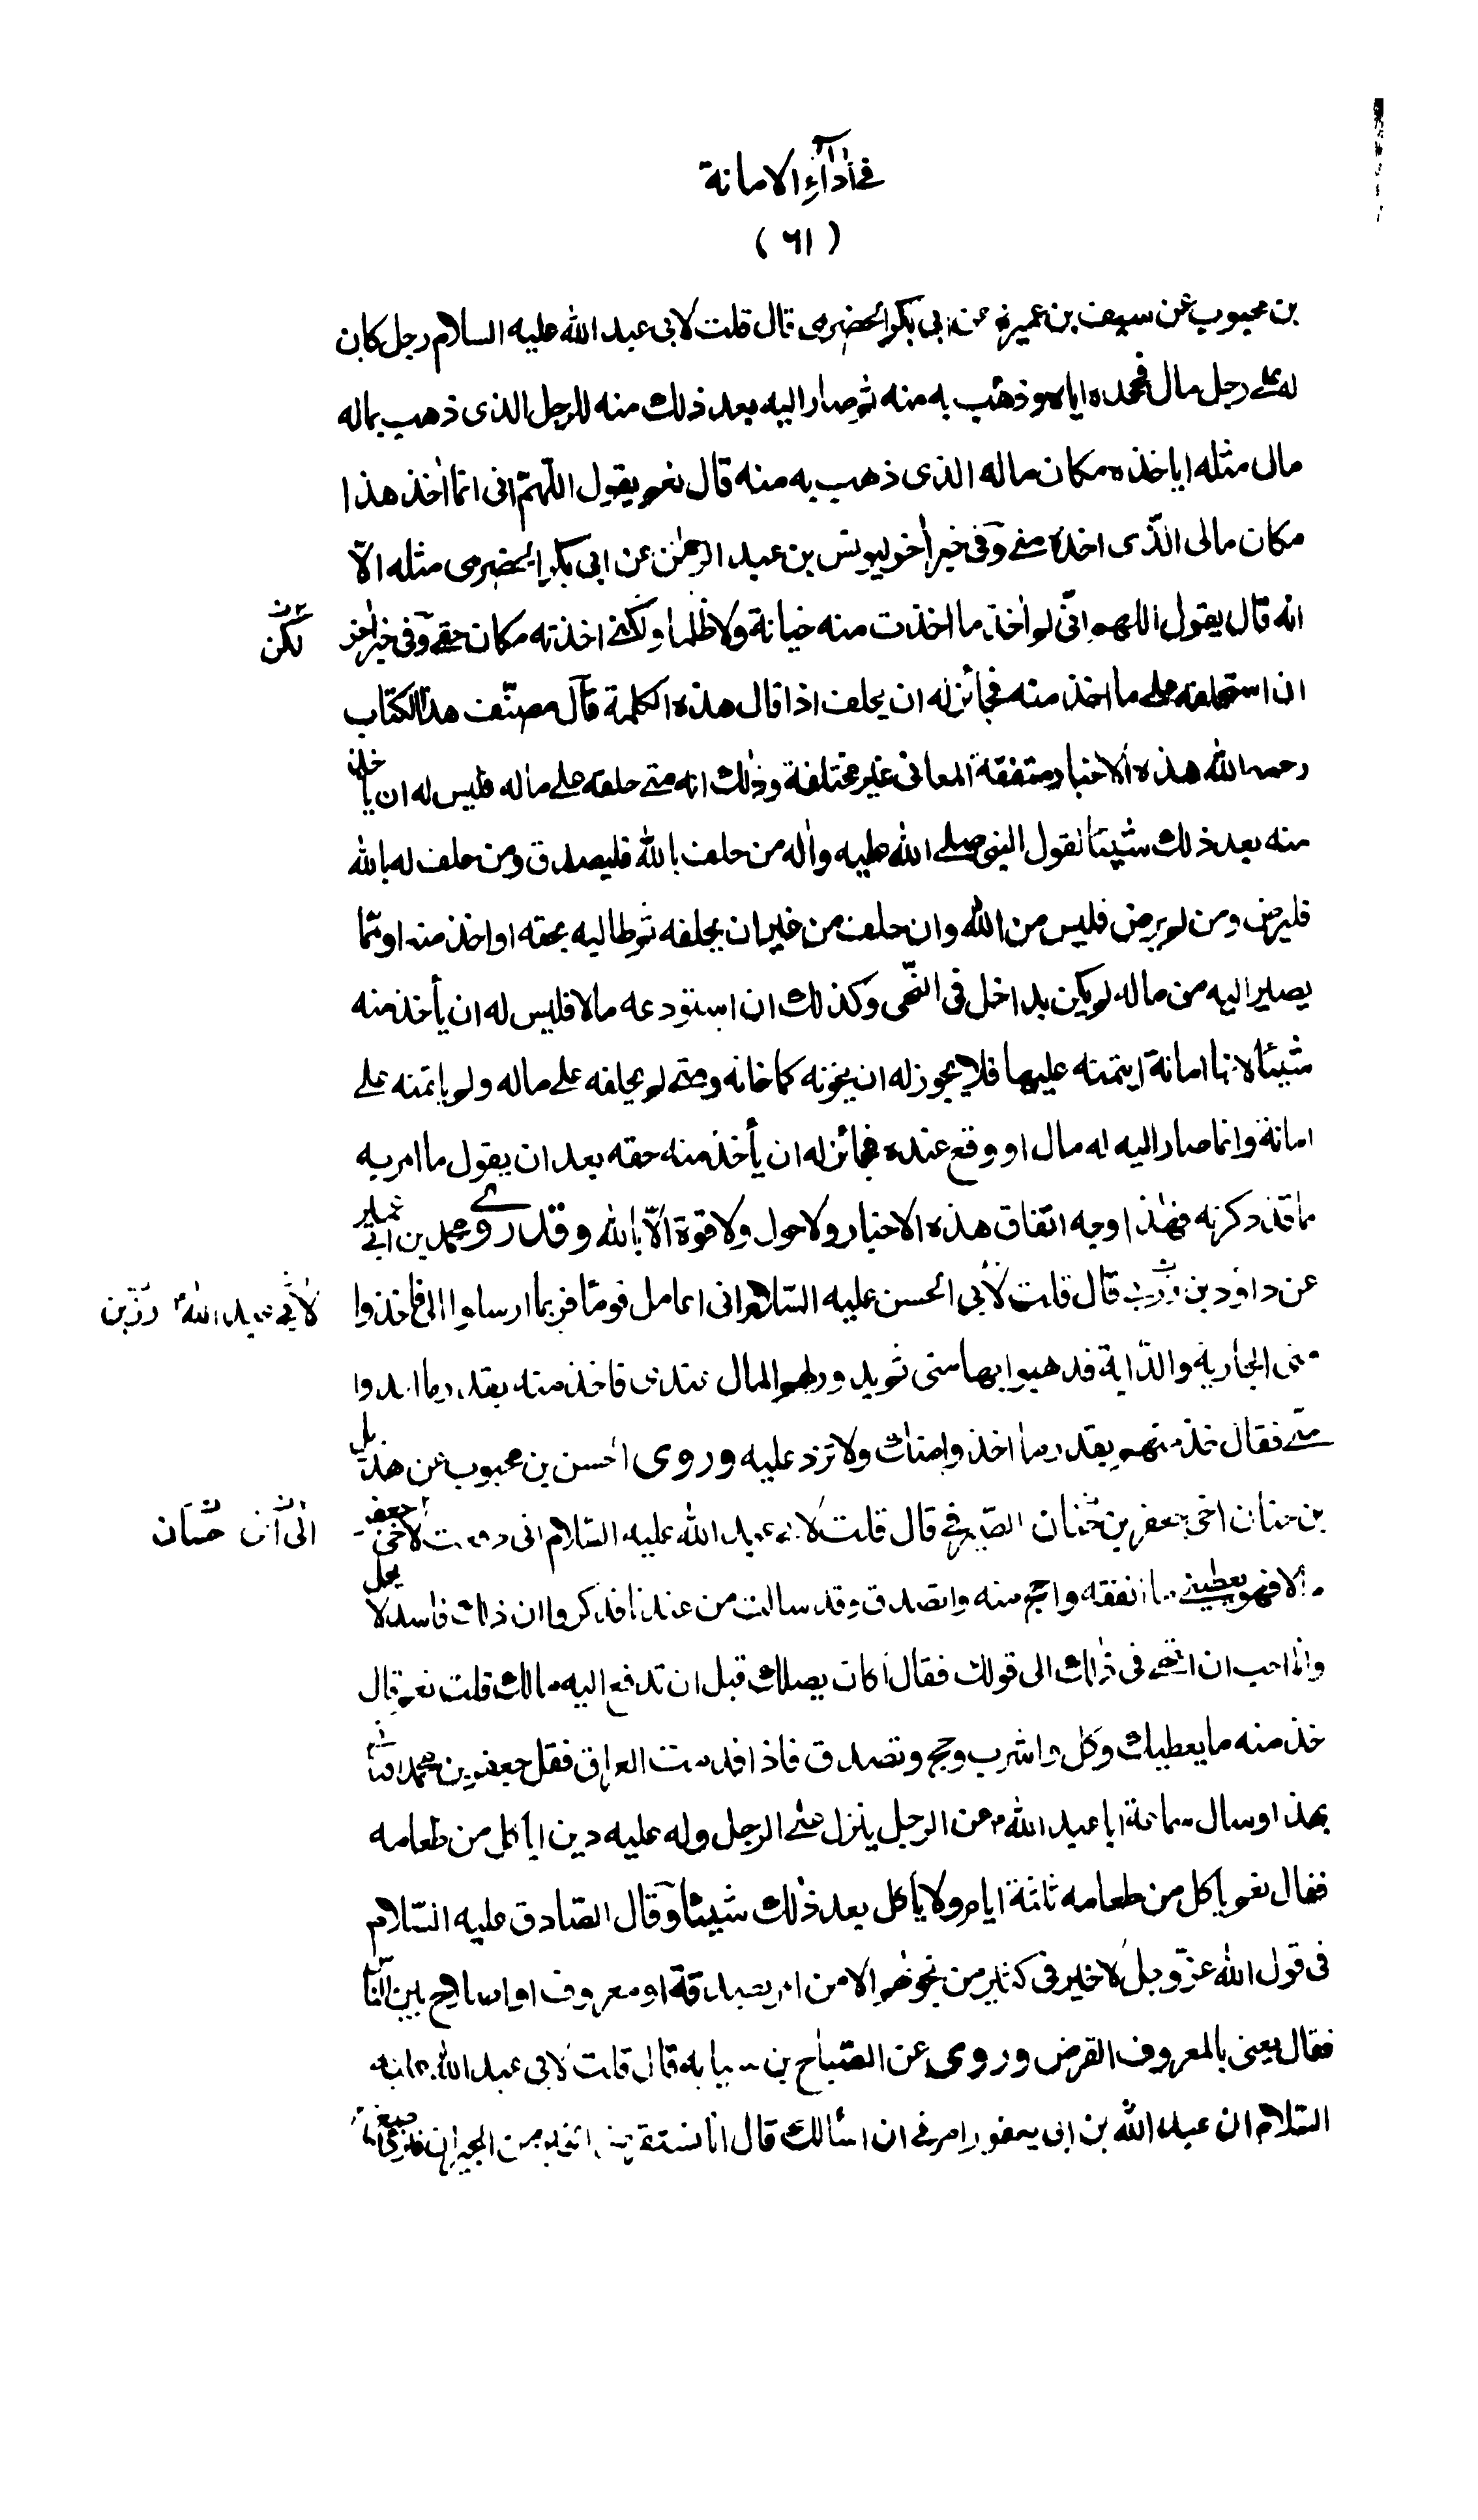 في أداء الامانة
(٦١)
بن محبوب عن سيف بن عميرة عن ابى بكر الحضرمى قال قلت لابى عبد الله عليه السلام رجل كان
له على رجل مال فجحده اياه وذهب به منه ثم صار اليه بعد ذلك منه للرجل الذى ذهب بماله
مال مثله اياخذه مكان ماله الذى ذهب به منه قال نعم يقول اللهمّ انى انما اٰخذ هذا
مكان مالى الذّى اخذه منى وفى خبر اٰخر ليونس بن عبد الرحمٰن عن ابى بكر الحضرمى مثله الاّ
انه قال يقول اللهم انّى لم اٰخذ ما اخذت منه خيانة ولا ظلما ولكنى اخذته مكان حقى وفى خبر اٰخر
لكن
ان استحلفه على ما اخذ منه فجائز له ان يحلف اذا قال هذه الكلمة قال مصنّف هذا الكتاب
رحمه الله هذه الاخبار متفقة المعانى غير مختلفة وذلك انه متى حلفه على ماله فليس له ان ياخذ
منه بعد ذلك شيئا لقول النبى صلى الله عليه واٰله من حلف بالله فليصدق ومن حلف له بالله
فليرض ومن لم يرض فليس من الله وان حلف من غير ان يحلفه ثم طالبه بحقه او اخذ منه او ممّا
يصير اليه من ماله لم يكن بداخل فى النّهى وكذلك ان استودعه مالا فليس له ان يأخذ منه
شيئا لانها امانة ايتمنه عليها فلا يجوز له ان يخونه كما خانه ومتى لم يحلفه على ماله ولم ياتمنه على
امانة وانما صار اليه له مال او وقع عنده فجائز له ان يأخذ منه حقه بعد ان يقول ما امر به
مما قد ذكرته فهٰذا وجه اتفاق هذه الاخبار ولا حول ولا قوة الاّ بالله وقد روى محمد بن ابى عمير
عن داود بن زربى قال قلت لأبى الحسن عليه السّلام انى اعامل قوما فربما ارسلوا الى فاخذوا
لأبى عبد الله رزين
منى الجارية والدّابة فذهبوا بها منى ثم يدور لهم المال عندى فاخذ منه بقدر ما اخذوا
منّى فقال خذ منهم بقدر ما اخذوا منك ولا تزد عليه وروى الحسن بن محبوب عن هذيل
بن حنان اخى جعفر بن حنان الصّيرفى قال قلت لابى عبد الله عليه السّلام انى دفعت لاخى جعفر
الى اخى حسان
مالا فهو يعطينى ما انفقه واحج منه واتصدق وقد سالت من عندنا فذكروا ان ذلك فاسد لا يحل
وانا احب ان انتهى فى ذٰلك الى قولك فقال أكان يصلك قبل ان تدفع اليه مالك قلت نعم قال
خذ منه ما يعطيك وكل واشرب وحج وتصدق فاذا قدمت العراق فقل جعفر بن محمد افتانى
بهذا وسال سماعة ابا عبد الله ع عن الرجل ينزل على الرجل وله عليه دين ايأكل من طعامه
فقال نعم ياكل من طعامه ثلثة ايام ولا يأكل بعد ذٰلك شيئا وقال الصّادق عليه السّلام
فى قول الله عزّ وجلّ لا خير فى كثير من نجوٰهم الا من امر بصدقة او معروف او اصلاح بين النّاس
فقال يعنى بالمعروف القرض وروى عن الصّباح بن سيابه قال قلت لابى عبد الله عليه
السّلام ان عبد الله بن ابى يعفور امرنى ان اسألك قال انا نستقرض الخبز من الجيران